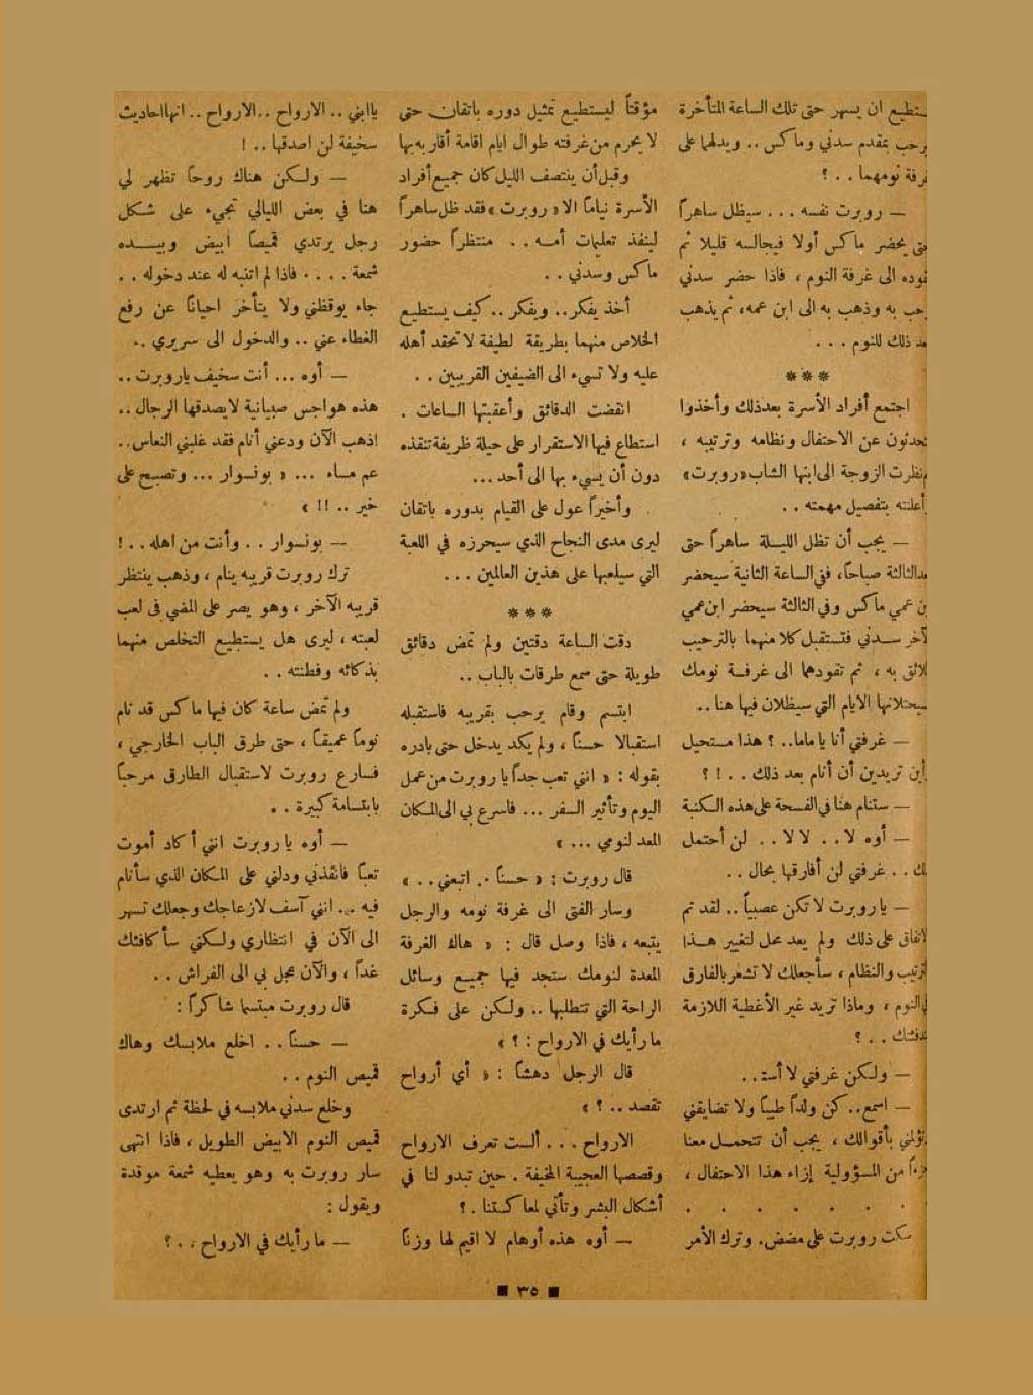 يستطيع ان يسهر حتى تلك الساعة المتأخرة
يرحب بمقدم سدني وماكس .. ويدلهما على
غرفة نومهما .. ؟
— روبرت نفسه ... سيظل ساهراً
حتى يحضر ماكس أولا فيجالسه قليلا ثم
يقوده الى غرفة النوم ، فاذا حضر سدني
رحب به وذهب به الى ابن عمه، ثم يذهب
بعد ذلك للنوم ...
***
اجتمع أفراد الأسرة بعد ذلك وأخذوا
يتحدثون عن الاحتفال ونظامه وترتيبه ،
ونظرت الزوجة الى ابنها الشاب «روبرت»
وأعلنته بتفصيل مهمته ..
— يجب أن تظل الليلة ساهراً حتى
بعد الثالثة صباحاً، ففي الساعة الثانية سيحضر
ابن عمي ماكس وفي الثالثة سيحضر ابن عمي
الآخر سدني فتستقبل كلا منهما بالترحيب
اللائق به ، ثم تقودهما الى غرفة نومك
سيحتلانها الايام التي سيظلان فيها هنا ..
— غرفتي أنا يا ماما.. ؟ هذا مستحيل
وأين تريدين أن أنام بعد ذلك .. ! ؟
— ستنام هنا في الفسحة على هذه الكنبة
— أوه لا .. لا لا .. لن أحتمل
ذلك .. غرفتي لن أفارقها بحال ..
— يا روبرت لا تكن عصبياً .. لقد تم
الاتفاق على ذلك ولم يعد محل لتغيير هذا
الترتيب والنظام ، سأجعلك لا تشعر بالفارق
في النوم ، وماذا تريد غير الأغطية اللازمة
لتدفئتك .. ؟
— ولكن غرفتي لا أستـ ..
— اسمع.. كن ولداً طيباً ولا تضايقني
وتؤلمني بأقوالك ، يجب أن تتحمل معنا
جزءاً من المسؤولية إزاء هذا الاحتفال ،
. . . . . . .
سكت روبرت على مضض. وترك الأمر
مؤقتاً ليستطيع تمثيل دوره باتقان حتى
لا يحرم من غرفته طوال ايام اقامة أقاربه بها
وقبل أن ينتصف الليل كان جميع أفراد
الأسرة نياماً الا «روبرت» فقد ظل ساهراً
لينفذ تعليمات أمه .. منتظراً حضور
ماكس وسدني ..
أخذ يفكر .. ويفكر .. كيف يستطيع
الخلاص منهما بطريقة لطيفة لا تحقد أهله
عليه ولا تسيء الى الضيفين القريبين ..
انقضت الدقائق وأعقبتها الساعات .
استطاع فيها الاستقرار على حيلة ظريفة تنقذه
دون أن يسيء بها الى أحد ...
وأخيراً عول على القيام بدوره باتقان
ليرى مدى النجاح الذي سيحرزه في اللعبة
التي سيلعبها على هذين العالمين ...
***
دقت الساعة دقتين ولم تمض دقائق
طويلة حتى سمع طرقات بالباب ..
ابتسم وقام يرحب بقريبه فاستقبله
استقبالا حسناً ، ولم يكد يدخل حتى بادره
بقوله : « انني تعب جداً يا روبرت من عمل
اليوم وتأثير السفر ... فاسرع بي الى المكان
المعد لنومي ... »
قال روبرت : « حسناً .. اتبعني .. »
وسار الفتى الى غرفة نومه والرجل
يتبعه ، فاذا وصل قال : « هاك الغرفة
المعدة لنومك ستجد فيها جميع وسائل
الراحة التي تتطلبها .. ولكن على فكرة
ما رأيك في الارواح : ؟ »
قال الرجل دهشاً : « أي أرواح
تقصد .. ؟ »
الارواح ... ألست تعرف الارواح
وقصصها العجيبة المخيفة . حين تبدو لنا في
أشكال البشر وتأتي لمعاكستنا . ؟
— أوه هذه أوهام لا اقيم لها وزناً
يا ابني .. الارواح .. الارواح .. انها احاديث
سخيفة لن اصدقها .. !
— ولكن هناك روحاً تظهر لي
هنا في بعض الليالي تجيء على شكل
رجل يرتدي قميصاً ابيض وبيده
شمعة .... فاذا لم اتنبه له عند دخوله ..
جاء يوقظني ولا يتأخر احياناً عن رفع
الغطاء عني .. والدخول الى سريري ..
— أوه ... أنت سخيف يا روبرت ..
هذه هواجس صبيانية لا يصدقها الرجال ..
اذهب الآن ودعني أنام فقد غلبني النعاس ..
عم مساء ... « بونسوار ... وتصبح على
خير .. !! »
— بونسوار .. وأنت من اهله .. !
ترك روبرت قريبه ينام ، وذهب ينتظر
قريبه الآخر ، وهو يصر على المضي في لعب
لعبته ، ليرى هل يستطيع التخلص منهما
بذكائه وفطنته ..
ولم تمض ساعة كان فيها ماكس قد نام
نوماً عميقاً ، حتى طرق الباب الخارجي ،
فسارع روبرت لاستقبال الطارق مرحباً
بابتسامة كبيرة ..
— أوه يا روبرت انني أكاد أموت
تعباً فانقذني ودلني على المكان الذي سأنام
فيه ... انني آسف لازعاجك وجعلك تسهر
الى الآن في انتظاري ولكني سأكافئك
غداً ، والآن عجل بي الى الفراش ..
قال روبرت مبتسما شاكراً :
— حسناً .. اخلع ملابسك وهاك
قميص النوم ..
وخلع سدني ملابسه في لحظة ثم ارتدى
قميص النوم الابيض الطويل ، فاذا انتهى
سار روبرت به وهو يعطيه شمعة موقدة
ويقول :
— ما رأيك في الارواح .. ؟
٣٥